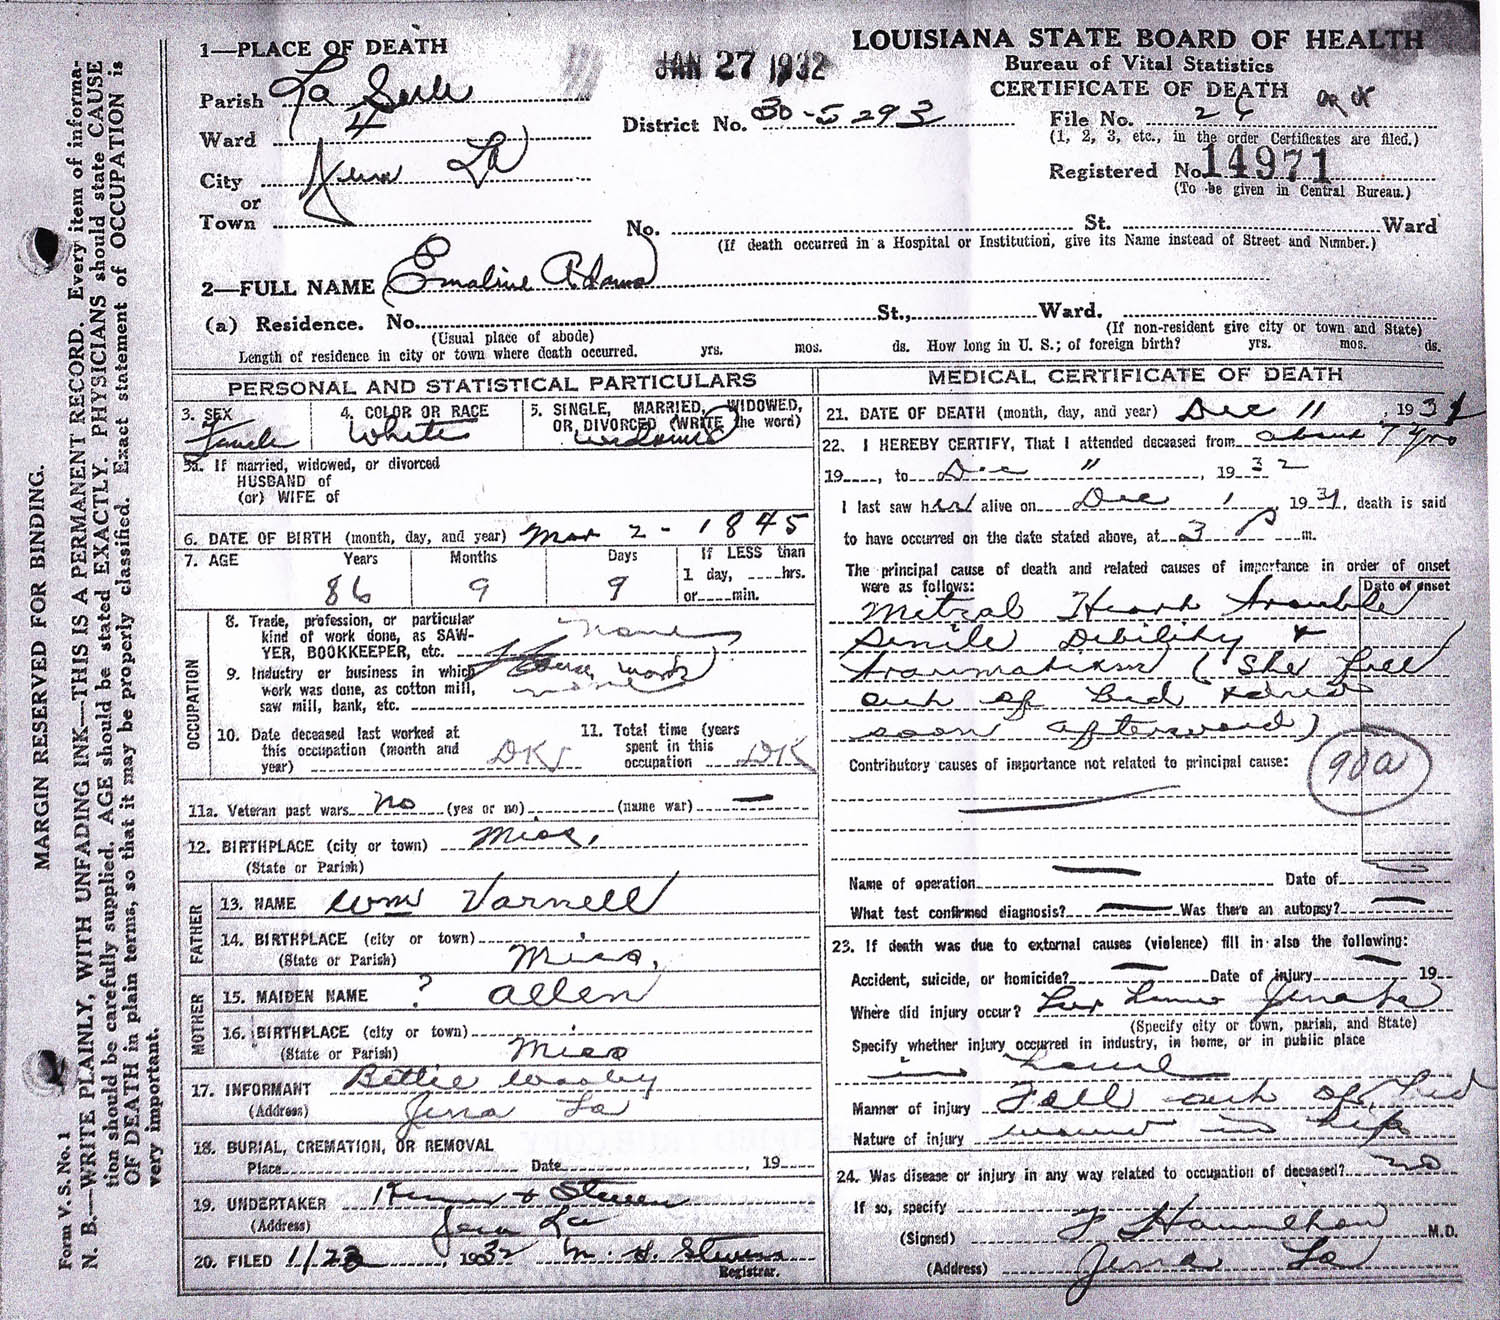 LOUISIANA STATE BOARD OF HEALTH
Bureau of Vital Statistics
CERTIFICATE OF DEATH
JAN 27 1932
1—PLACE OF DEATH
Parish La Salle
Ward 4
City Jena La
or
Town
District No. 30-5293
File No. 26
(1, 2, 3, etc., in the order Certificates are filed.)
Registered No. 14971
(To be given in Central Bureau.)
No. St. Ward
(If death occurred in a Hospital or Institution, give its Name instead of Street and Number.)
2—FULL NAME Emaline Adams
(a) Residence. No. St., Ward.
(Usual place of abode) (If non-resident give city or town and State)
Length of residence in city or town where death occurred. yrs. mos. ds. How long in U. S.; of foreign birth? yrs. mos. ds.
PERSONAL AND STATISTICAL PARTICULARS
3. SEX Female
4. COLOR OR RACE White
5. SINGLE, MARRIED, WIDOWED,
OR, DIVORCED (WRITE the word)
widowed
5a. If married, widowed, or divorced
HUSBAND of
(or) WIFE of
6. DATE OF BIRTH (month, day, and year) Mar 2 - 1845
7. AGE Years Months Days If LESS than
1 day, hrs.
or min.
86 9 9
OCCUPATION
8. Trade, profession, or particular
kind of work done, as SAW-
YER, BOOKKEEPER, etc. none
House work
9. Industry or business in which
work was done, as cotton mill,
saw mill, bank, etc. none
10. Date deceased last worked at
this occupation (month and
year) DK
11. Total time (years
spent in this
occupation DK
11a. Veteran past wars no (yes or no) (name war) —
12. BIRTHPLACE (city or town) Miss.
(State or Parish)
FATHER
13. NAME Wm Varnell
14. BIRTHPLACE (city or town)
(State or Parish) Miss.
MOTHER
15. MAIDEN NAME ? Allen
16. BIRTHPLACE (city or town)
(State or Parish) Miss
17. INFORMANT Bettie
(Address) Jena La
18. BURIAL, CREMATION, OR REMOVAL
Place Date , 19
19. UNDERTAKER & Steven
(Address) Jena La
20. FILED 1/23, 1932 Stevens
Registrar.
MEDICAL CERTIFICATE OF DEATH
21. DATE OF DEATH (month, day, and year) Dec 11, 193
22. I HEREBY CERTIFY, That I attended deceased from about 7 yrs
19, to Dec 11, 1932
I last saw her alive on Dec 1, 1931, death is said
to have occurred on the date stated above, at 3 P m.
The principal cause of death and related causes of importance in order of onset
were as follows: Date of onset
Mitral Heart trouble
Senile Debility &
traumatism (She fell
out of bed & died
soon afterward)
Contributory causes of importance not related to principal cause:
90a
Name of operation — Date of —
What test confirmed diagnosis? — Was there an autopsy? —
23. If death was due to external causes (violence) fill in also the following:
Accident, suicide, or homicide? — Date of injury — 19
Where did injury occur? Her home Jena La
(Specify city or town, parish, and State)
Specify whether injury occurred in industry, in home, or in public place
in home
Manner of injury Fell out of bed
Nature of injury in hip
24. Was disease or injury in any way related to occupation of deceased? no
If so, specify
(Signed) Hamilton M.D.
(Address) Jena La
MARGIN RESERVED FOR BINDING.
Form V. S. No. 1
N. B.—WRITE PLAINLY, WITH UNFADING INK—THIS IS A PERMANENT RECORD. Every item of informa-
tion should be carefully supplied. AGE should be stated EXACTLY. PHYSICIANS should state CAUSE
OF DEATH in plain terms, so that it may be properly classified. Exact statement of OCCUPATION is
very important.